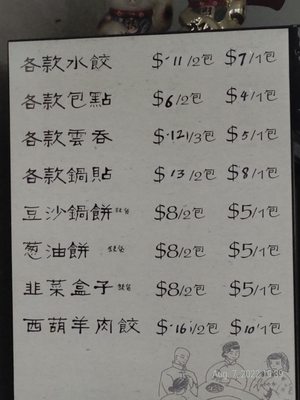 各款水餃 $11/2包 $7/1包
各款包點 $6/2包 $4/1包
各款雲吞 $12/3包 $5/1包
各款鍋貼 $13/2包 $8/1包
豆沙鍋餅 $8/2包 $5/1包
葱油餅 $8/2包 $5/1包
韭菜盒子 $8/2包 $5/1包
西葫羊肉餃 $16/2包 $10/1包
Aug. 7, 2022